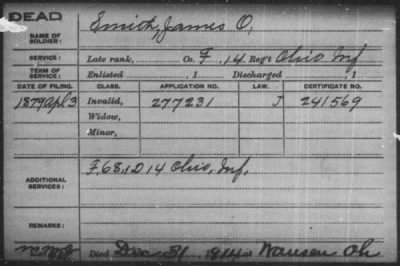 DEAD
NAME OF SOLDIER: Smith, James O,
SERVICE: Late rank, Co. F, 14 Reg't Ohio Inf
TERM OF SERVICE: Enlisted , 1 Discharged , 1
DATE OF FILING. CLASS. APPLICATION NO. LAW. CERTIFICATE NO.
1879 Apl 3 Invalid, 277231 J 241569
Widow,
Minor,
ADDITIONAL SERVICES: F, 68, & D 14 Ohio, Inf,
REMARKS:
Died Dec 31, 1914 at Wauseon Oh